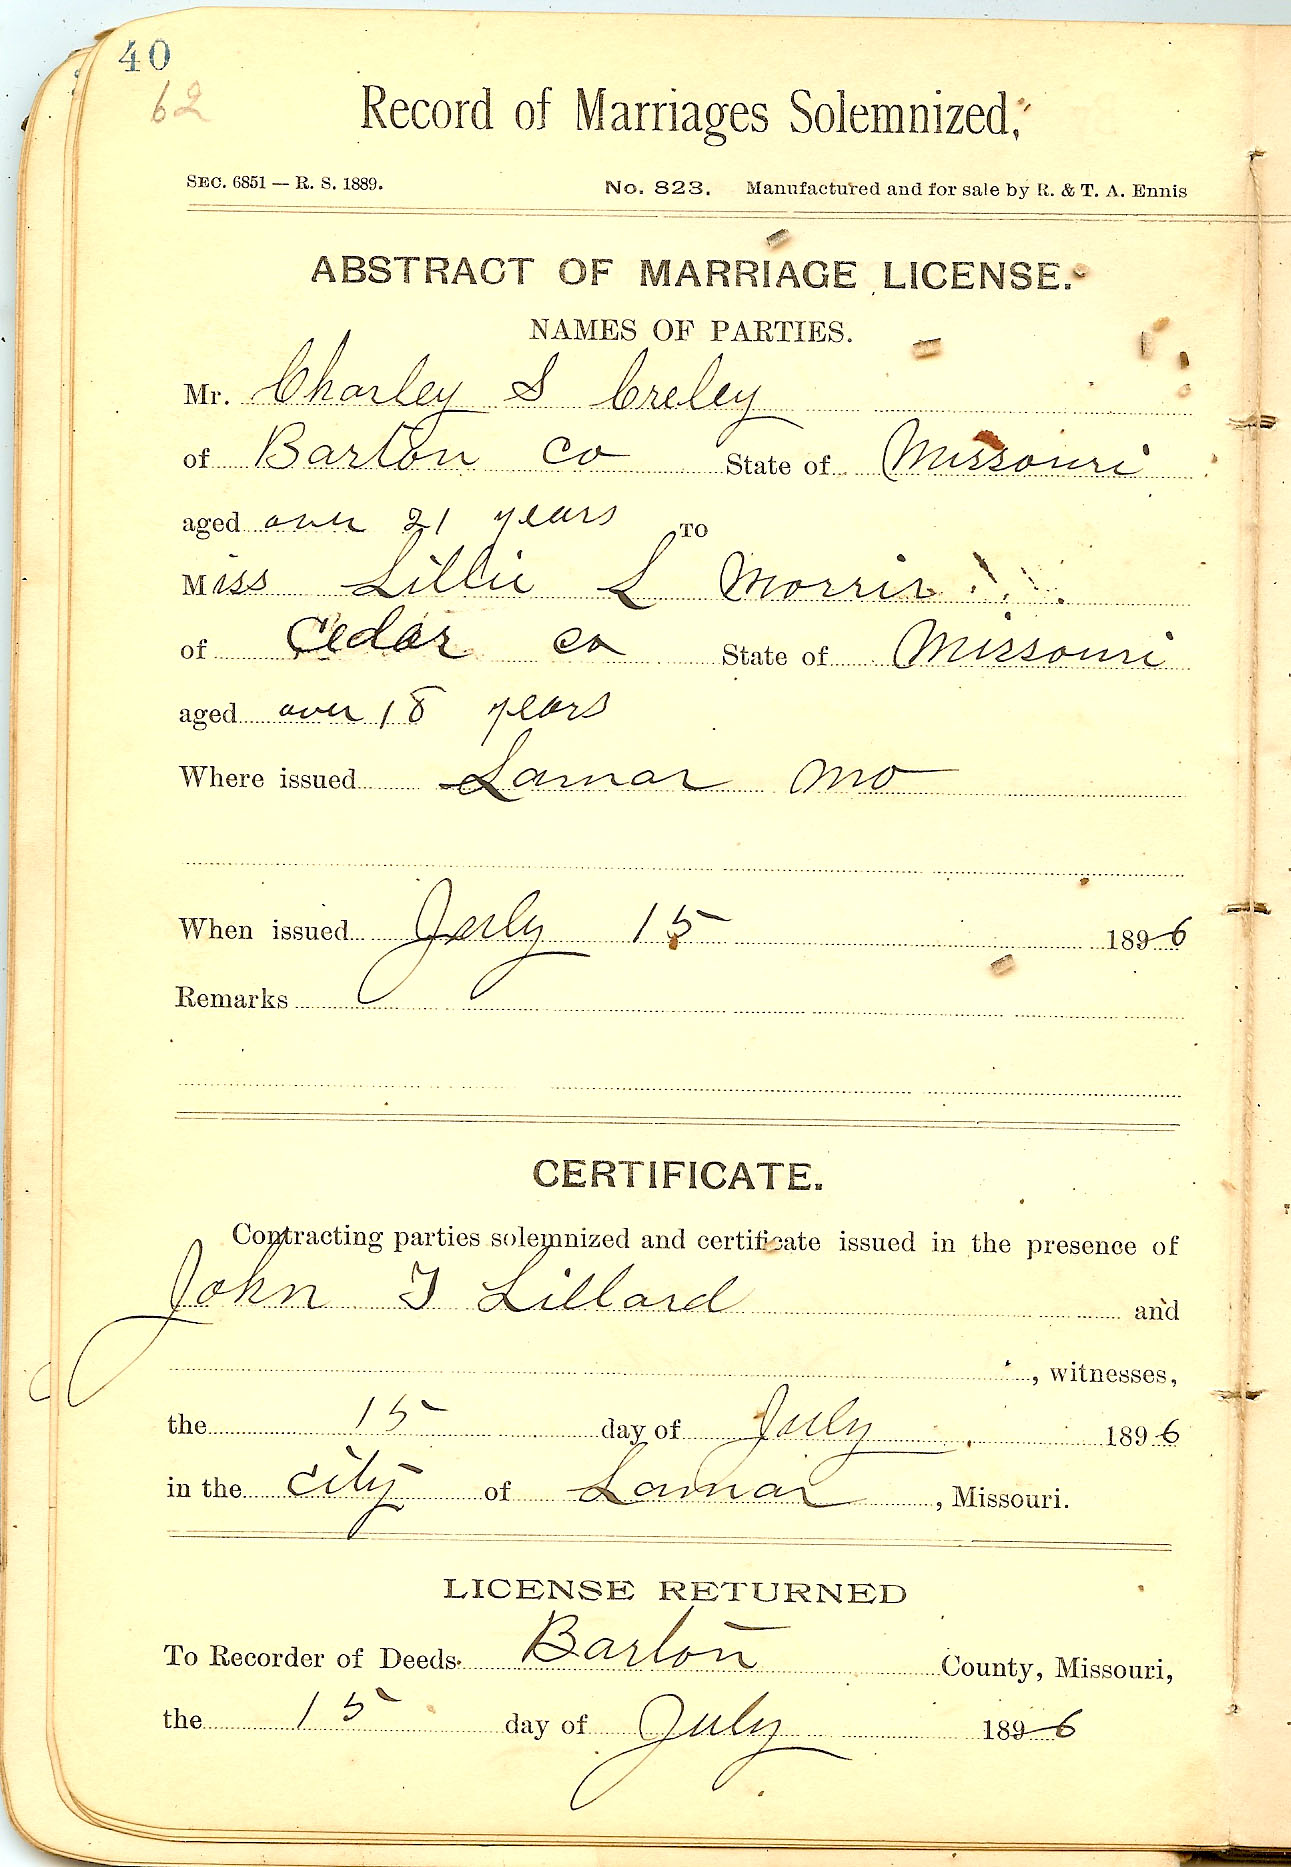 40
62
Record of Marriages Solemnized,
SEC. 6851 — R. S. 1889. No. 823. Manufactured and for sale by R. & T. A. Ennis
ABSTRACT OF MARRIAGE LICENSE.
NAMES OF PARTIES.
Mr. Charley S Creley
of Barton Co State of Missouri
aged over 21 years TO
Miss Lillie L Morris
of Cedar Co State of Missouri
aged over 18 years
Where issued Lamar Mo
When issued July 15 1896
Remarks
CERTIFICATE.
Contracting parties solemnized and certificate issued in the presence of
John T Lillard and
, witnesses,
the 15 day of July 1896
in the city of Lamar, Missouri.
LICENSE RETURNED
To Recorder of Deeds. Barton County, Missouri,
the 15 day of July 1896